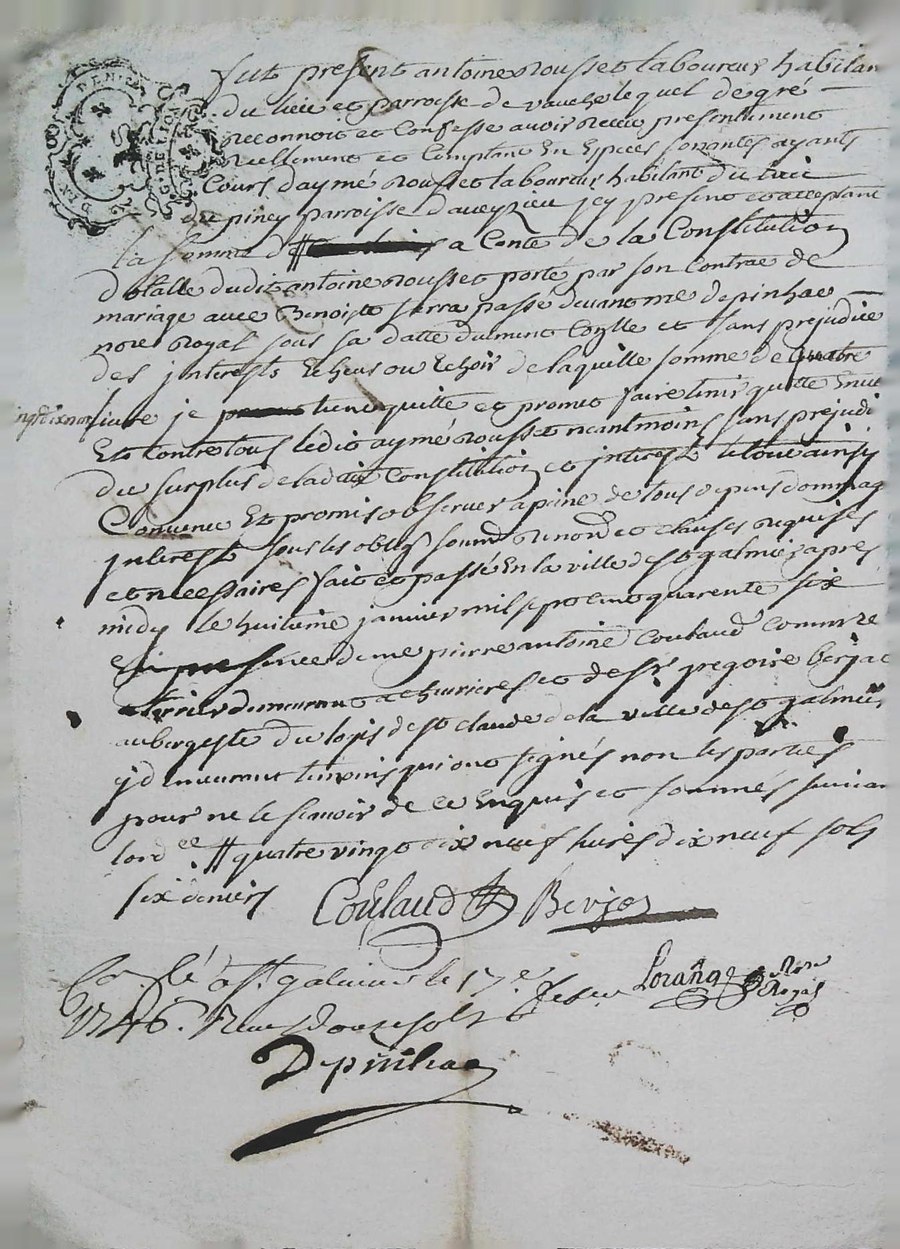 DEN
G. DE LION
fut present antoine rousset laboureur habitan
du lieu et parroisse de lequel de gré
reconnoit et Confesse avoir receu presentement
reellement et Comptant En Especes sonantes ayants
Cours d'aymé rousset laboureur habitant du lieu
du piney parroisse d'aveyzieu jcy present et acceptant
la somme d a Conte de la Constitution
dotalle dudit antoine rousset porté par son Contrac de
mariage avec Benoiste serra passé devant me depinhac
nore Royal sous sa datte dument Conllé et sans prejudice
des jnterests Echeus ou Echoir de laquille somme de quatre
livre je tiens quitte et promet faire tenir quitte Envers
Et Contre tous ledit aymé rousset neantmoins sans prejudi
du surplus de la dite Constitution et jnterest le tout ainsy
Convenu Et promis observer a pine de tous depens dommag
jnterest sous les oblig soumd renond et clauses requises
et necessaires fait et passé En la ville de st galmier apres
midy le huitieme janvier mil sept cent quarente six
En presence de me pierre antoine Coulaud Commre
terrier demeurant a et de sr gregoire berjac
aubergiste du logis de st claude de la ville de st galmier
y demeurant temoins qui ont signés non les parties
pour ne le scavoir de ce Enquis et sommés suivan
lord ce # quatre vingt dix neuf livres dix neuf sols
six deniers
Coulaud Berjac
Conllé a St galmier le 17e Lorange Nore Royal
1746. Receu Douze sols
Depinhac